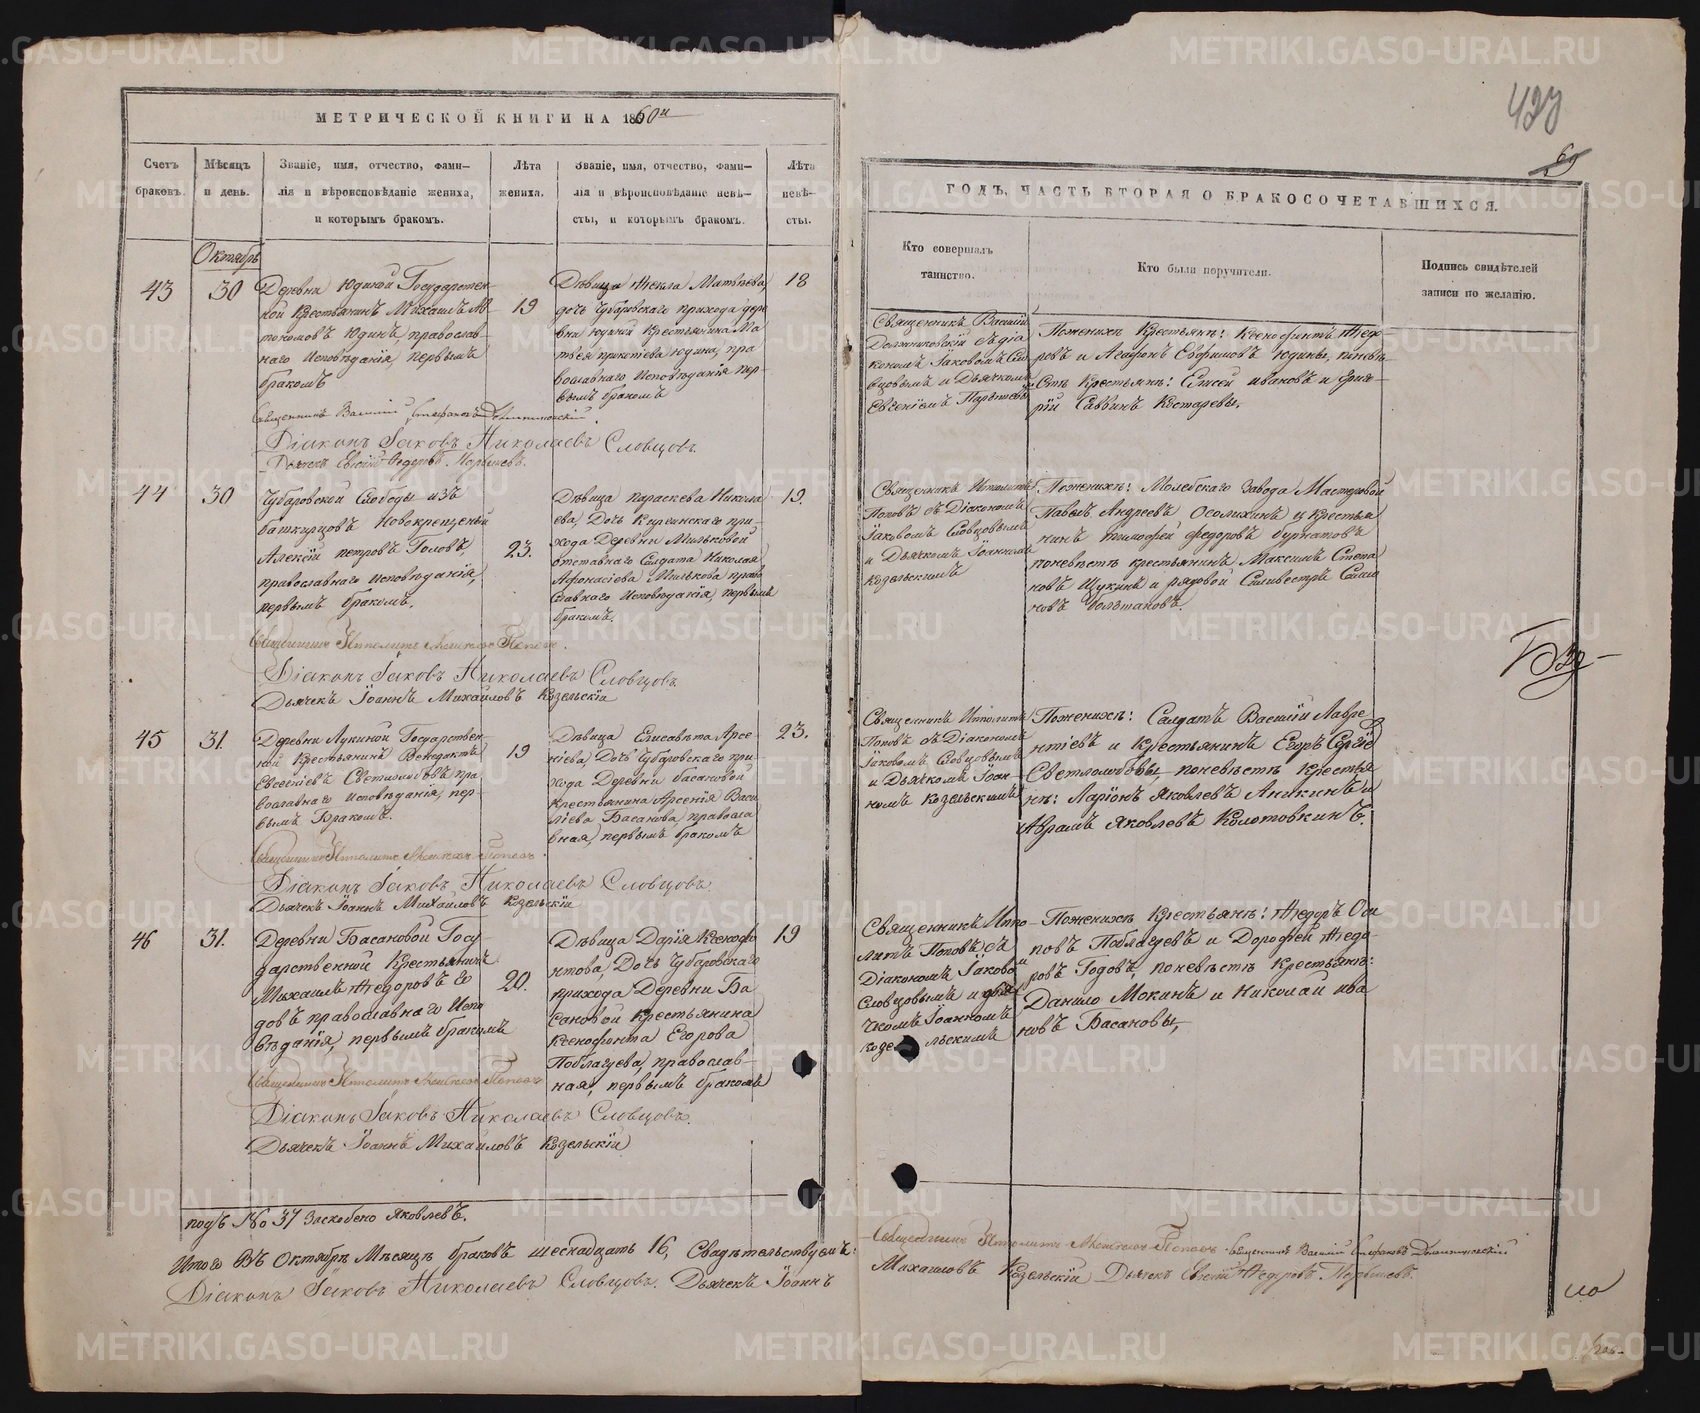 МЕТРИЧЕСКОЙ КНИГИ НА 1860й
Счетъ браковъ.
Мѣсяцъ и день.
Званіе, имя, отчество, фами-
лія и вѣроисповѣданіе жениха,
и которымъ бракомъ.
Лѣта
жениха.
Званіе, имя, отчество, фами-
лія и вѣроисповѣданіе невѣ-
сты, и которымъ бракомъ.
Лѣта
невѣ-
сты.
ГОДЪ, ЧАСТЬ ВТОРАЯ О БРАКОСОЧЕТАВШИХСЯ.
Кто совершалъ
таинство.
Кто были поручители.
Подпись свидѣтелей
записи по желанію.
69
Октябрь
43
30
Деревни Юдиной Государствен-
ной Крестьянинъ Михаилъ
Юдинъ, православ-
наго исповѣданія, первымъ
бракомъ
19
Дѣвица Ѳекла Матвѣева,
дочь Чубаровскаго прихода дере
вни Юдиной Крестьянина Ма
твея Юдина, пра
вославнаго исповѣданія пер-
вымъ бракомъ
18
Священникъ Василій
съ діа
кономъ Іаковомъ Сло
вцовымъ и Дьячкомъ
Евгеніемъ
По женихѣ Крестьяне: Ксенофонтъ Ѳедо-
ровъ и Агафонъ Евфимовъ Юдины, по невѣ
стѣ Крестьяне: Елисей Ивановъ и Григо-
рій Саввинъ Костаревы.
Священникъ Василій Стефановъ
Діаконъ Іаковъ Николаевъ Словцовъ.
Дьячекъ Евгеній Ѳедоровъ
44
30
Чубаровской Слободы изъ
башкирцовъ Новокрещеный
Алексій Петровъ Головъ,
православнаго исповѣданія,
первымъ бракомъ.
23.
Дѣвица Параскева Никола
ева, дочь Киргинскаго при-
хода Деревни Мильковой
отставнаго Солдата Николая
Афонасіева Милькова право
славнаго исповѣданія, первымъ
бракомъ.
19.
Священникъ Ипполитъ
Поповъ съ Діакономъ
Іаковомъ Словцовымъ
и Дьячкомъ Іоанномъ
Козельскимъ
По женихѣ: Молебскаго Завода Мастеровой
Павелъ Андреевъ Осолихинъ и Крестья
нинъ Тимофей Федоровъ Бурматовъ
по невѣстѣ крестьянинъ Максимъ Степа
новъ Щукинъ и рядовой Сильвестръ
новъ
Священникъ Ипполитъ Поповъ.
Діаконъ Іаковъ Николаевъ Словцовъ
Дьячекъ Іоаннъ Михайловъ Козельскій
45
31.
Деревни Лукиной Государствен-
ной Крестьянинъ Венедиктъ
Евсевіевъ Светлолобовъ пра
вославнаго исповѣданія, пер-
вымъ бракомъ.
19
Дѣвица Елисавета Арсе-
ніева, Дочь Чубаровскаго при
хода Деревни Басановой
Крестьянина Арсенія Васи
ліева Басанова, правосла
вная, первымъ бракомъ
23.
Священникъ Ипполитъ
Поповъ съ Діакономъ
Іаковомъ Словцовымъ
и Дьячкомъ Іоан-
номъ Козельскимъ
По женихѣ: Солдатъ Василій Лавре-
нтіевъ и Крестьянинъ Егоръ Сергіе
Светлолобовы, по невѣстѣ Крестья
не: Маріонъ Яковлевъ Аникинъ и
Аврамъ Яковлевъ Колотовкинъ.
Священникъ Ипполитъ Поповъ
Діаконъ Іаковъ Николаевъ Словцовъ.
Дьячекъ Іоаннъ Михайловъ Козельскій
46
31.
Деревни Басановой Госу
дарственной Крестьянинъ
Михаилъ Ѳедоровъ Го
довъ православнаго испо
вѣданія, первымъ бракомъ
20.
Дѣвица Дарія Ксенофо
нтова, Дочь Чубаровскаго
прихода Деревни Ба
сановой Крестьянина
Ксенофонта Егорова
Поблагуева, православ-
ная, первымъ бракомъ
19
Священникъ Иппо-
литъ Поповъ съ
Діакономъ Іаково
Словцовымъ и Дья
чкомъ Іоанномъ
Козельскимъ
По женихѣ Крестьяне: Ѳедоръ Оси
повъ Поблагуевъ и Дорофей Ѳедо-
ровъ Годовъ, по невѣстѣ Крестьяне:
Данило Мокинъ и Николай Ива
новъ Басановы,
Священникъ Ипполитъ Поповъ
Діаконъ Іаковъ Николаевъ Словцовъ.
Дьячекъ Іоаннъ Михайловъ Козельскій
подъ No 37 заскоблено Яковлевъ.
Итого въ Октябрѣ Мѣсяцѣ браковъ шеснадцать 16, Свидѣтельствуемъ:
Священникъ Ипполитъ Поповъ. Священникъ Василій Стефановъ
Діаконъ Іаковъ Николаевъ Словцовъ. Дьячекъ Іоаннъ
Михайловъ Козельскій Дьячекъ Евгеній Ѳедоровъ
METRIKI.GASO-URAL.RU